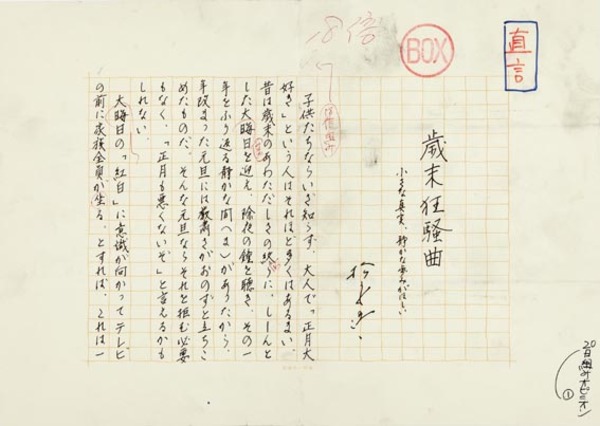 直言
BOX
倍
歳末狂騒曲
小さな真実、静かな
子供たちならいざ知らず、大人で「正月大
好き」という人はそれほど多くはあるまい。
昔は歳末のあわただしさの終りに、しーんと
した大晦日を迎え、除夜の鐘を聴き、その一
年をふり返る静かな間〈ま〉があったから、
年改まった元旦には厳粛さがおのずと立ちこ
めたものだ。そんな元旦ならそれを拒む必要
もなく、「正月も悪くないぞ」と言えるかも
しれない。
大晦日の「紅白」に意識が向かってテレビ
の前に家族全員が坐る。とすれば、これは一
20日組みオピニオン
①